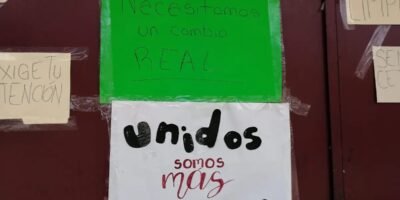 Necesitamos
un cambio
REAL
EXIGE TU
ATENCIÓN
unidos
somos
más
LIMPI
SE
CE